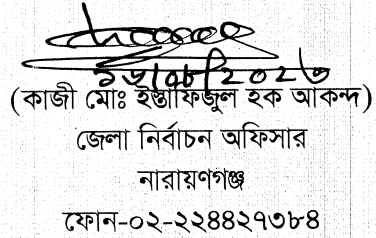 (কাজী মোঃ ইস্তাফিজুল হক আকন্দ)
জেলা নির্বাচন অফিসার
নারায়ণগঞ্জ
ফোন-০২-২২৪৪২৭৩৮৪